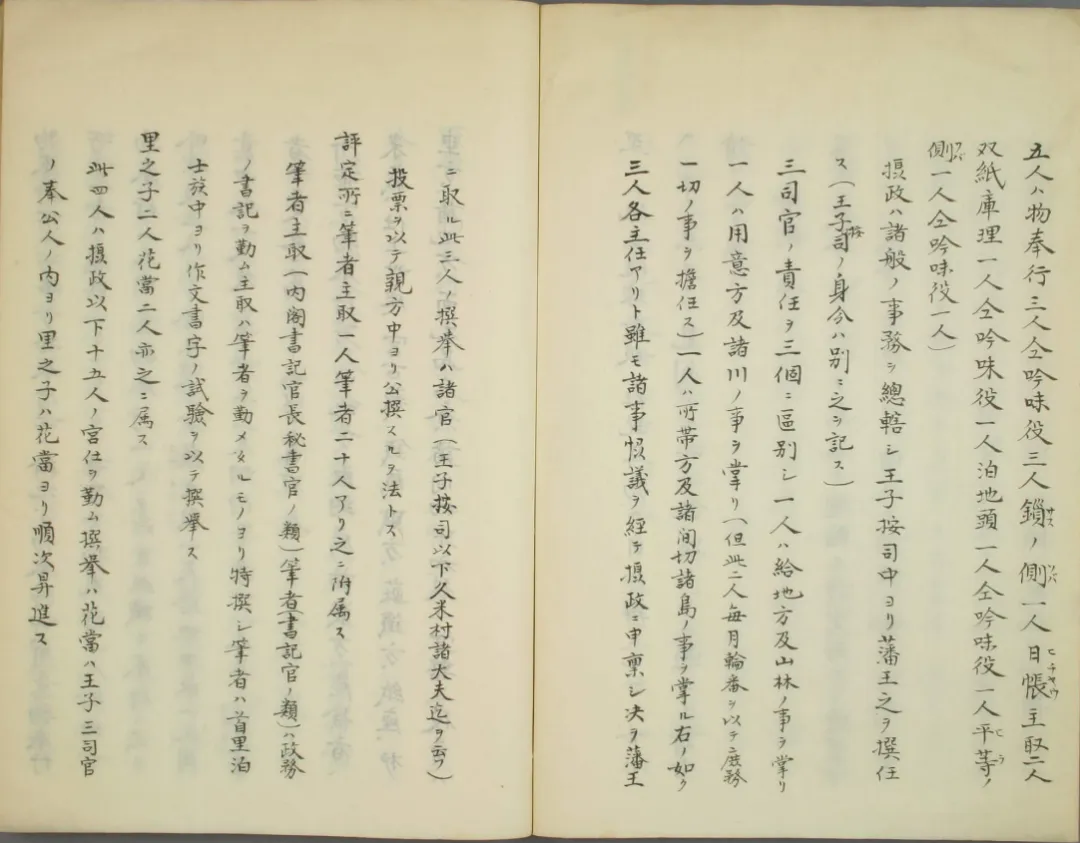 五人ハ物奉行三人仝吟味役三人鎖ノ側一人日帳主取二人
双紙庫理一人仝吟味役一人泊地頭一人仝吟味役一人平等ノ
側一人仝吟味役一人)
摂政ハ諸般ノ事務ヲ總轄シ王子按司中ヨリ藩王之ヲ撰任
ス(王子按司ノ身分ハ別ニ之ヲ記ス)
三司官ノ責任ヲ三個ニ區別シ一人ハ給地方及山林ノ事ヲ掌リ
一人ハ用意方及諸川ノ事ヲ掌リ(但此二人毎月輪番ヲ以テ庶務
一切ノ事ヲ擔任ス)一人ハ所帯方及諸间切諸島ノ事ヲ掌ル右ノ如ク
三人各主任アリト雖モ諸事恊議ヲ経テ摂政ニ申禀シ决ヲ藩王
ニ取ル此三人ノ撰挙ハ諸官(王子按司以下久米村諸大夫迄ヲ云フ)
投票ヲ以テ親方中ヨリ公撰スルヲ法トス
評定所ニ筆者主取一人筆者二十人アリ之ニ附属ス
筆者主取(内閣書記官長秘書官ノ類)筆者(書記官ノ類)ハ政務
ノ書記ヲ勤ム主取ハ筆者ヲ勤メタルモノヨリ特撰シ筆者ハ首里泊
士族中ヨリ作文書字ノ試驗ヲ以テ撰挙ス
里之子二人花當二人亦之ニ属ス
此四人ハ摂政以下十五人ノ宮仕ヲ勤ム撰挙ハ花當ハ王子三司官
ノ奉公人ノ内ヨリ里之子ハ花當ヨリ順次昇進ス